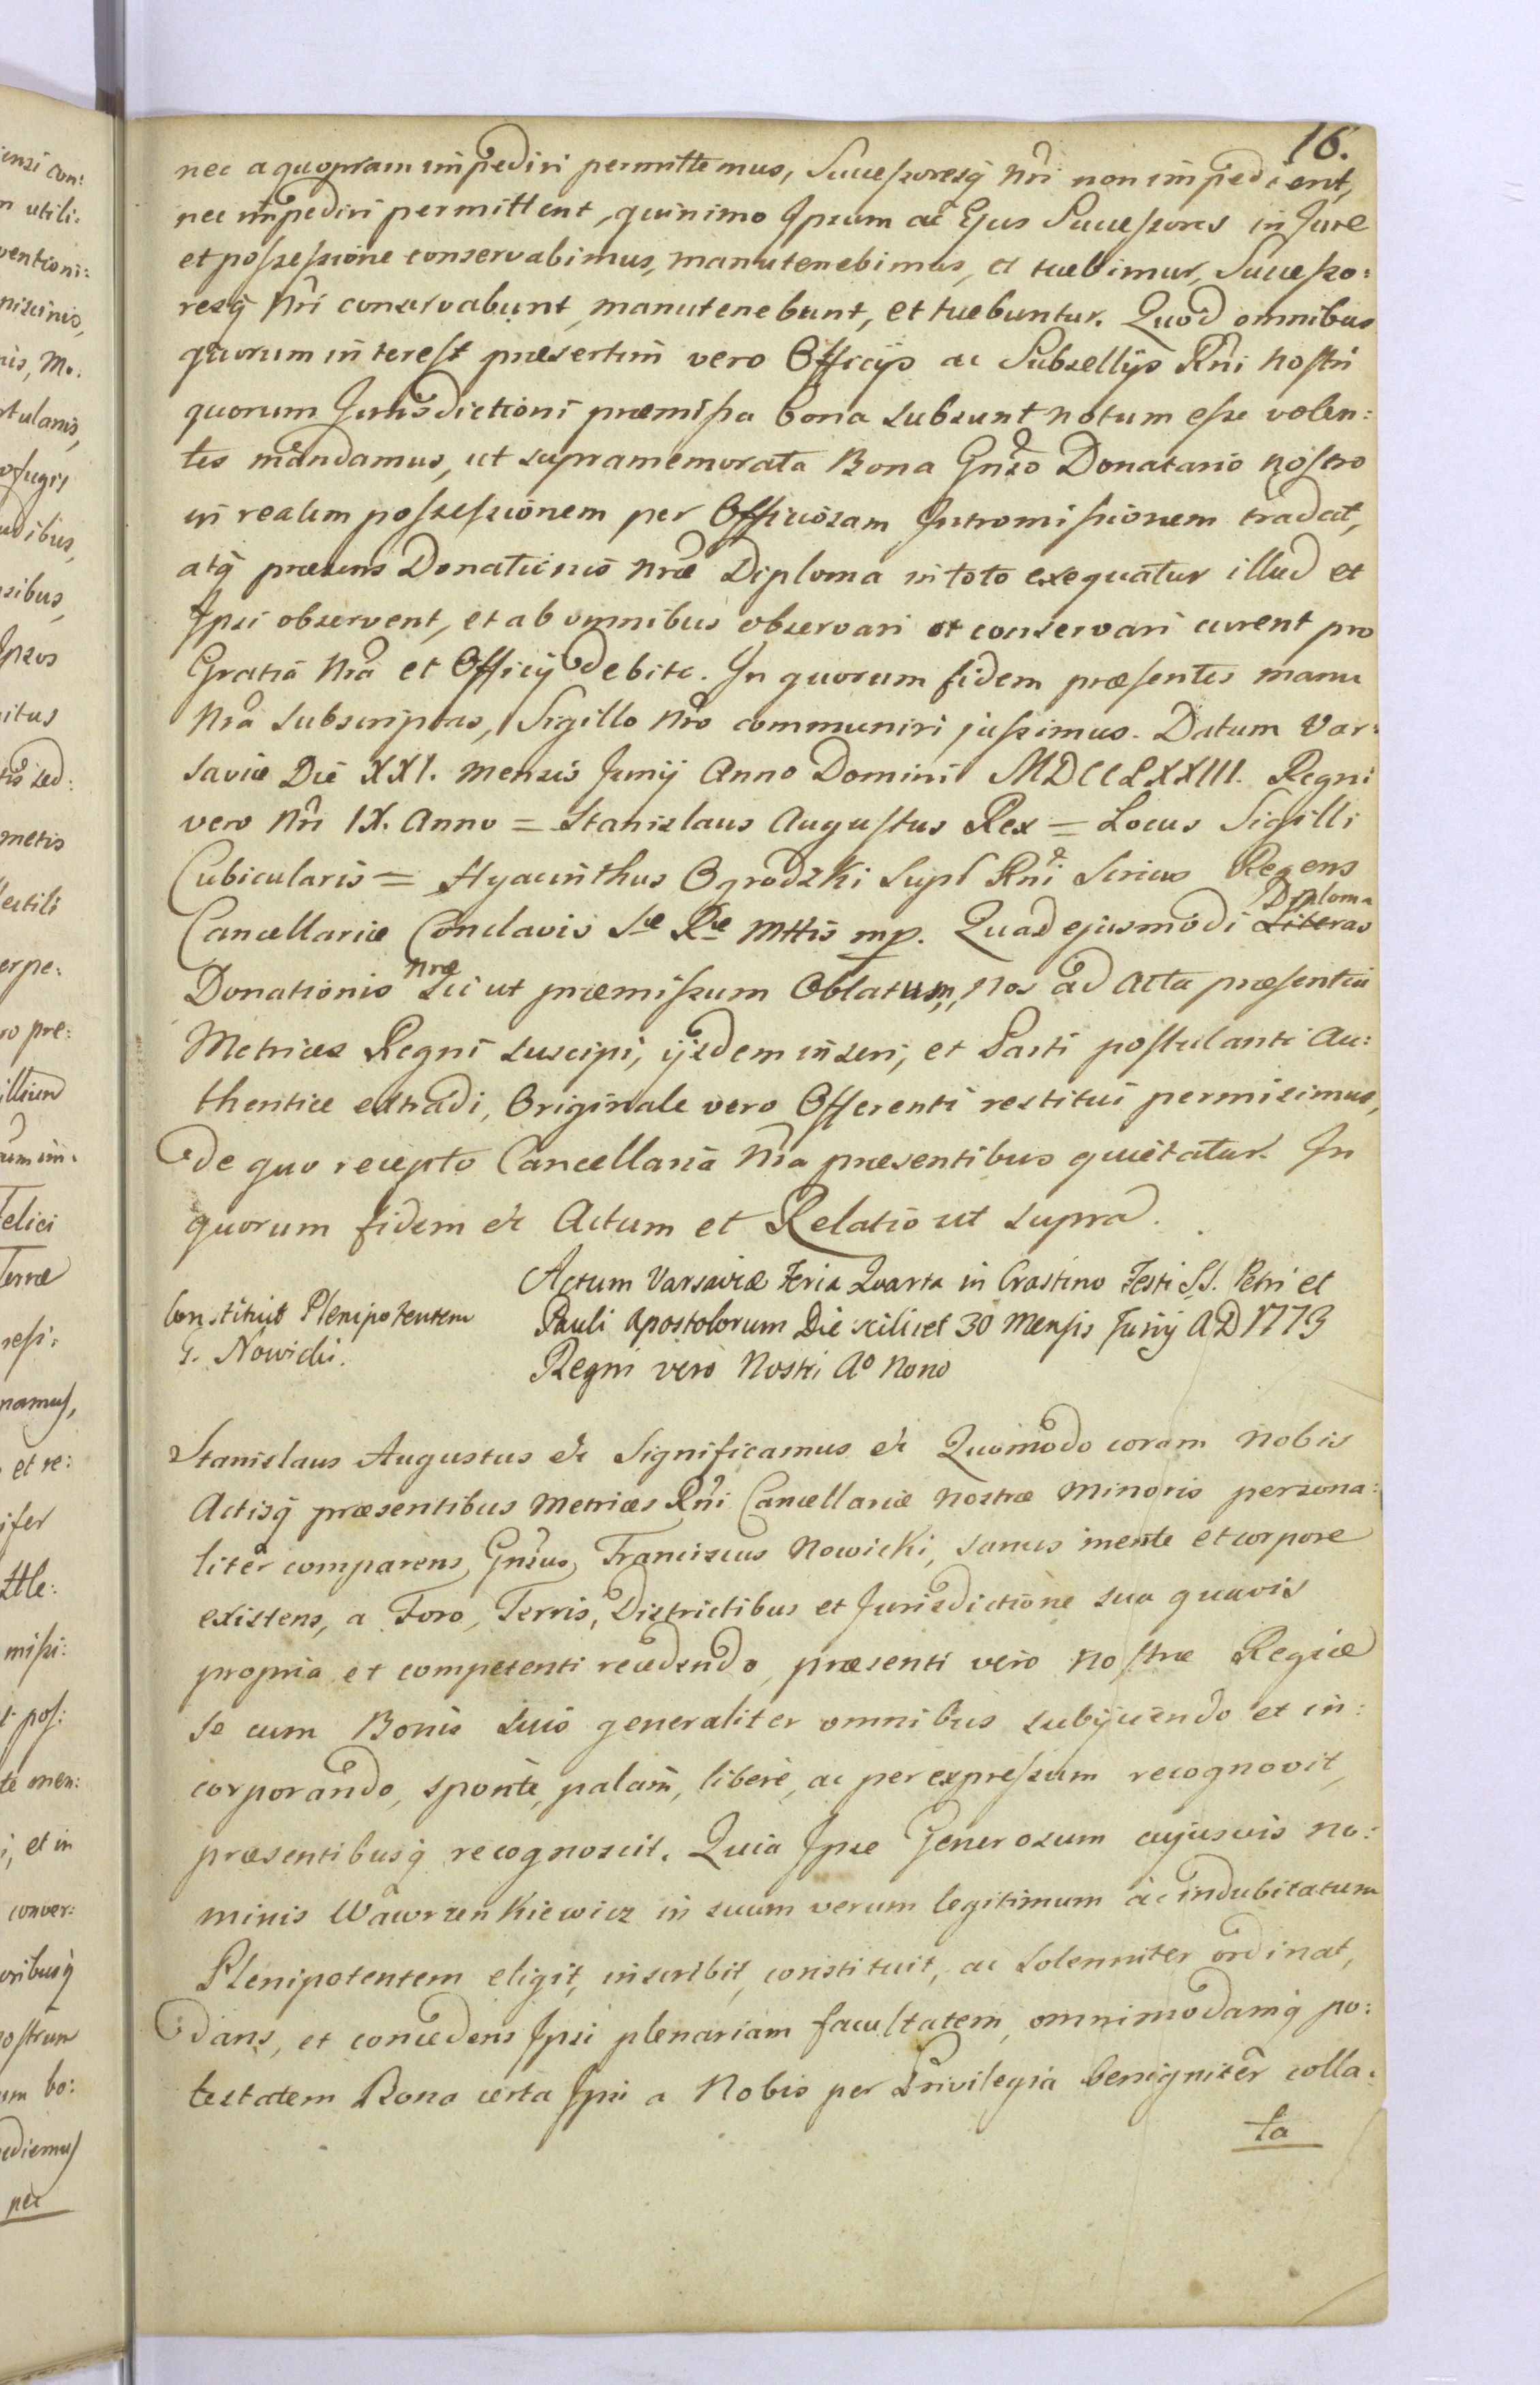 16.
nec a quopiam impediri permittemus, Successoresq̃ Nr̃i non impedient,
nec impediri permittent, quinimo Ipsum ac Ejus Successores in Jure
et possessione conservabimus, manutenebimus, et tuebimur, Successo:
resq̃ Nr̃i conservabunt, manutenebunt, et tuebuntur. Quod omnibus
quorum interest præsertim vero Officijs ac Subsellijs Rñi Nostri
quorum Jurisdictioni præmissa bona subsunt notum esse volen:
tes mandamus, ut supramemorata Bona Gñso Donatario nostro
in realem possessionem per Officiosam Intromissionem tradat,
atq̃ præsens Donationis Nræ Diploma in toto exequatur illud et
Ipsi observent, et ab omnibus observari et conservari curent pro
Gratia Nrã et Officij debito. In quorum fidem præsentes manu
Nrã subscriptas, Sigillo Nrõ communiri jussimus. Datum Var:
saviæ Die XXI. Mensis Junij Anno Domini MDCCLXXIII. Regni
vero Nr̃i IX. Anno = Stanislaus Augustus Rex = Locus Sigilli
Cubicularis = Hyacinthus Ogrodzki Supr̃ Rñi Srius Regens
Diploma
Cancellariæ Conclavis Sæ Ræ Mttis mp. Quod ejusmodi Literas
Nræ
Donationis Sic ut præmissum Oblatum, Nos ad Acta præsentia
Metrices Regni suscipi, ijsdem inseri, et Parti postulanti Au:
thentice extradi, Originale vero Offerenti restitui permisimus,
de quo recepto Cancellaria Nra præsentibus quietatur. In
quorum fidem &c Actum et Relatio ut supra.
Actum Varsaviæ Feria Quarta in Crastino Festi S.S. Petri et
Pauli Apostolorum Die scilicet 30 Mensis Junij A D 1773
Regni vero Nostri Aº Nono
Constituit Plenipotentem
G. Nowicki.
Stanislaus Augustus &c Significamus &c Quomodo coram Nobis
Actisq̃ præsentibus Metrices Rñi Cancellariæ Nostræ Minoris persona:
liter comparens Gñsus Franciscus Nowicki, sanus mente et corpore
existens, a Foro, Terris, Districtibus et Jurisdictione sua quavis
propria et competenti recedendo, præsenti vero Nostræ Regiæ
se cum Bonis suis generaliter omnibus subijciendo et in:
corporando, sponte, palam, libere, ac per expressum recognovit,
præsentibusq̃ recognoscit. Quia Ipse Generosum cujusvis no:
minis Wawrzenkiewicz in suum verum legitimum ac indubitatum
Plenipotentem eligit, inscribit, constituit, ac solenniter ordinat,
dans, et concedens Ipsi plenariam facultatem, omnimodamq̃ po:
testatem Bona certa Ipsi a Nobis per Privilegia benigniter colla:
ta